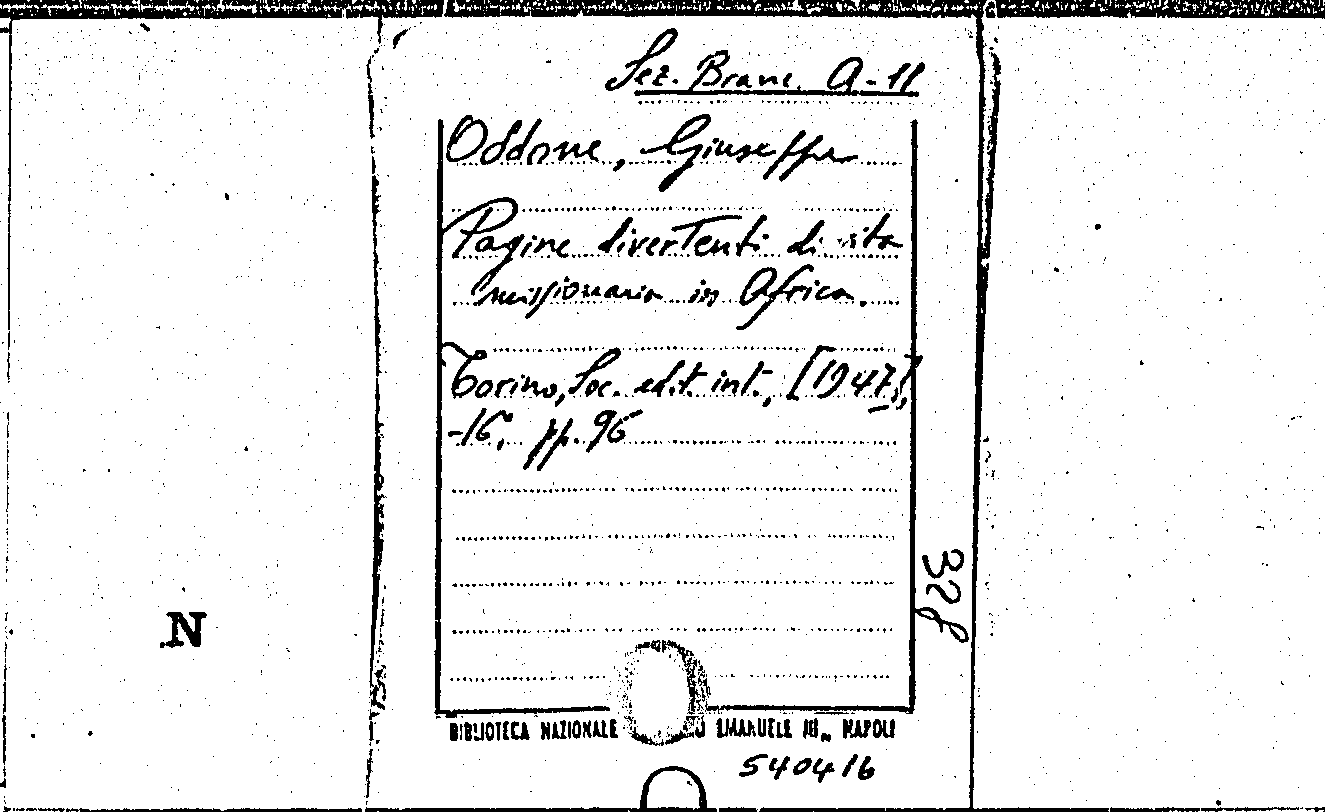 Sez. Branc. A-11
Oddone, Giuseppe
Pagine divertenti di vita
missionaria in Africa.
Torino, Soc. edit. int., [1947],
-16°, pp. 96
328
N
BIBLIOTECA NAZIONALE EMANUELE III„ NAPOLI
540416